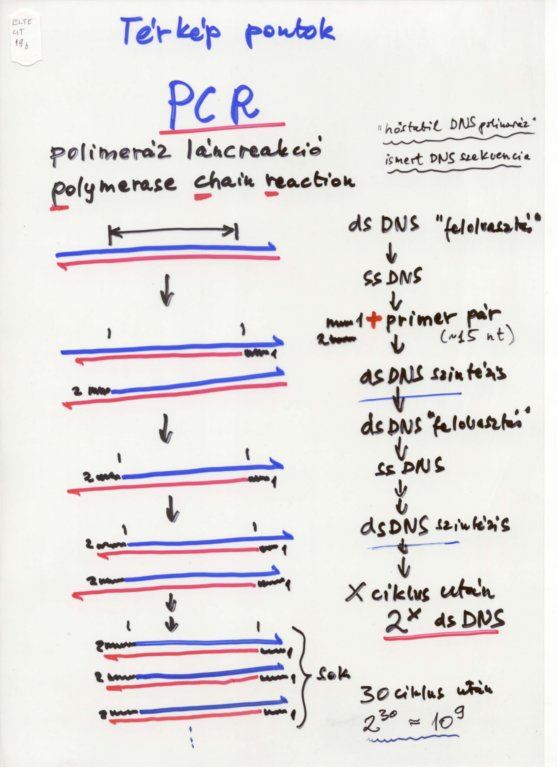 ELTE
Térkép pontok
PCR
polimeráz láncreakció
polymerase chain reaction
"hőstabil DNS polimeráz"
ismert DNS szekvencia
ds DNS "felolvasztás"
ss DNS
1 + primer pár
2 (~15 nt)
ds DNS szintézis
ds DNS "felolvasztás"
ss DNS
ds DNS szintézis
X ciklus után
2^x ds DNS
30 ciklus után
2^30 ≈ 10^9
1
2
2
1
2
1
2
1
2
1
2
1
2
1
sok